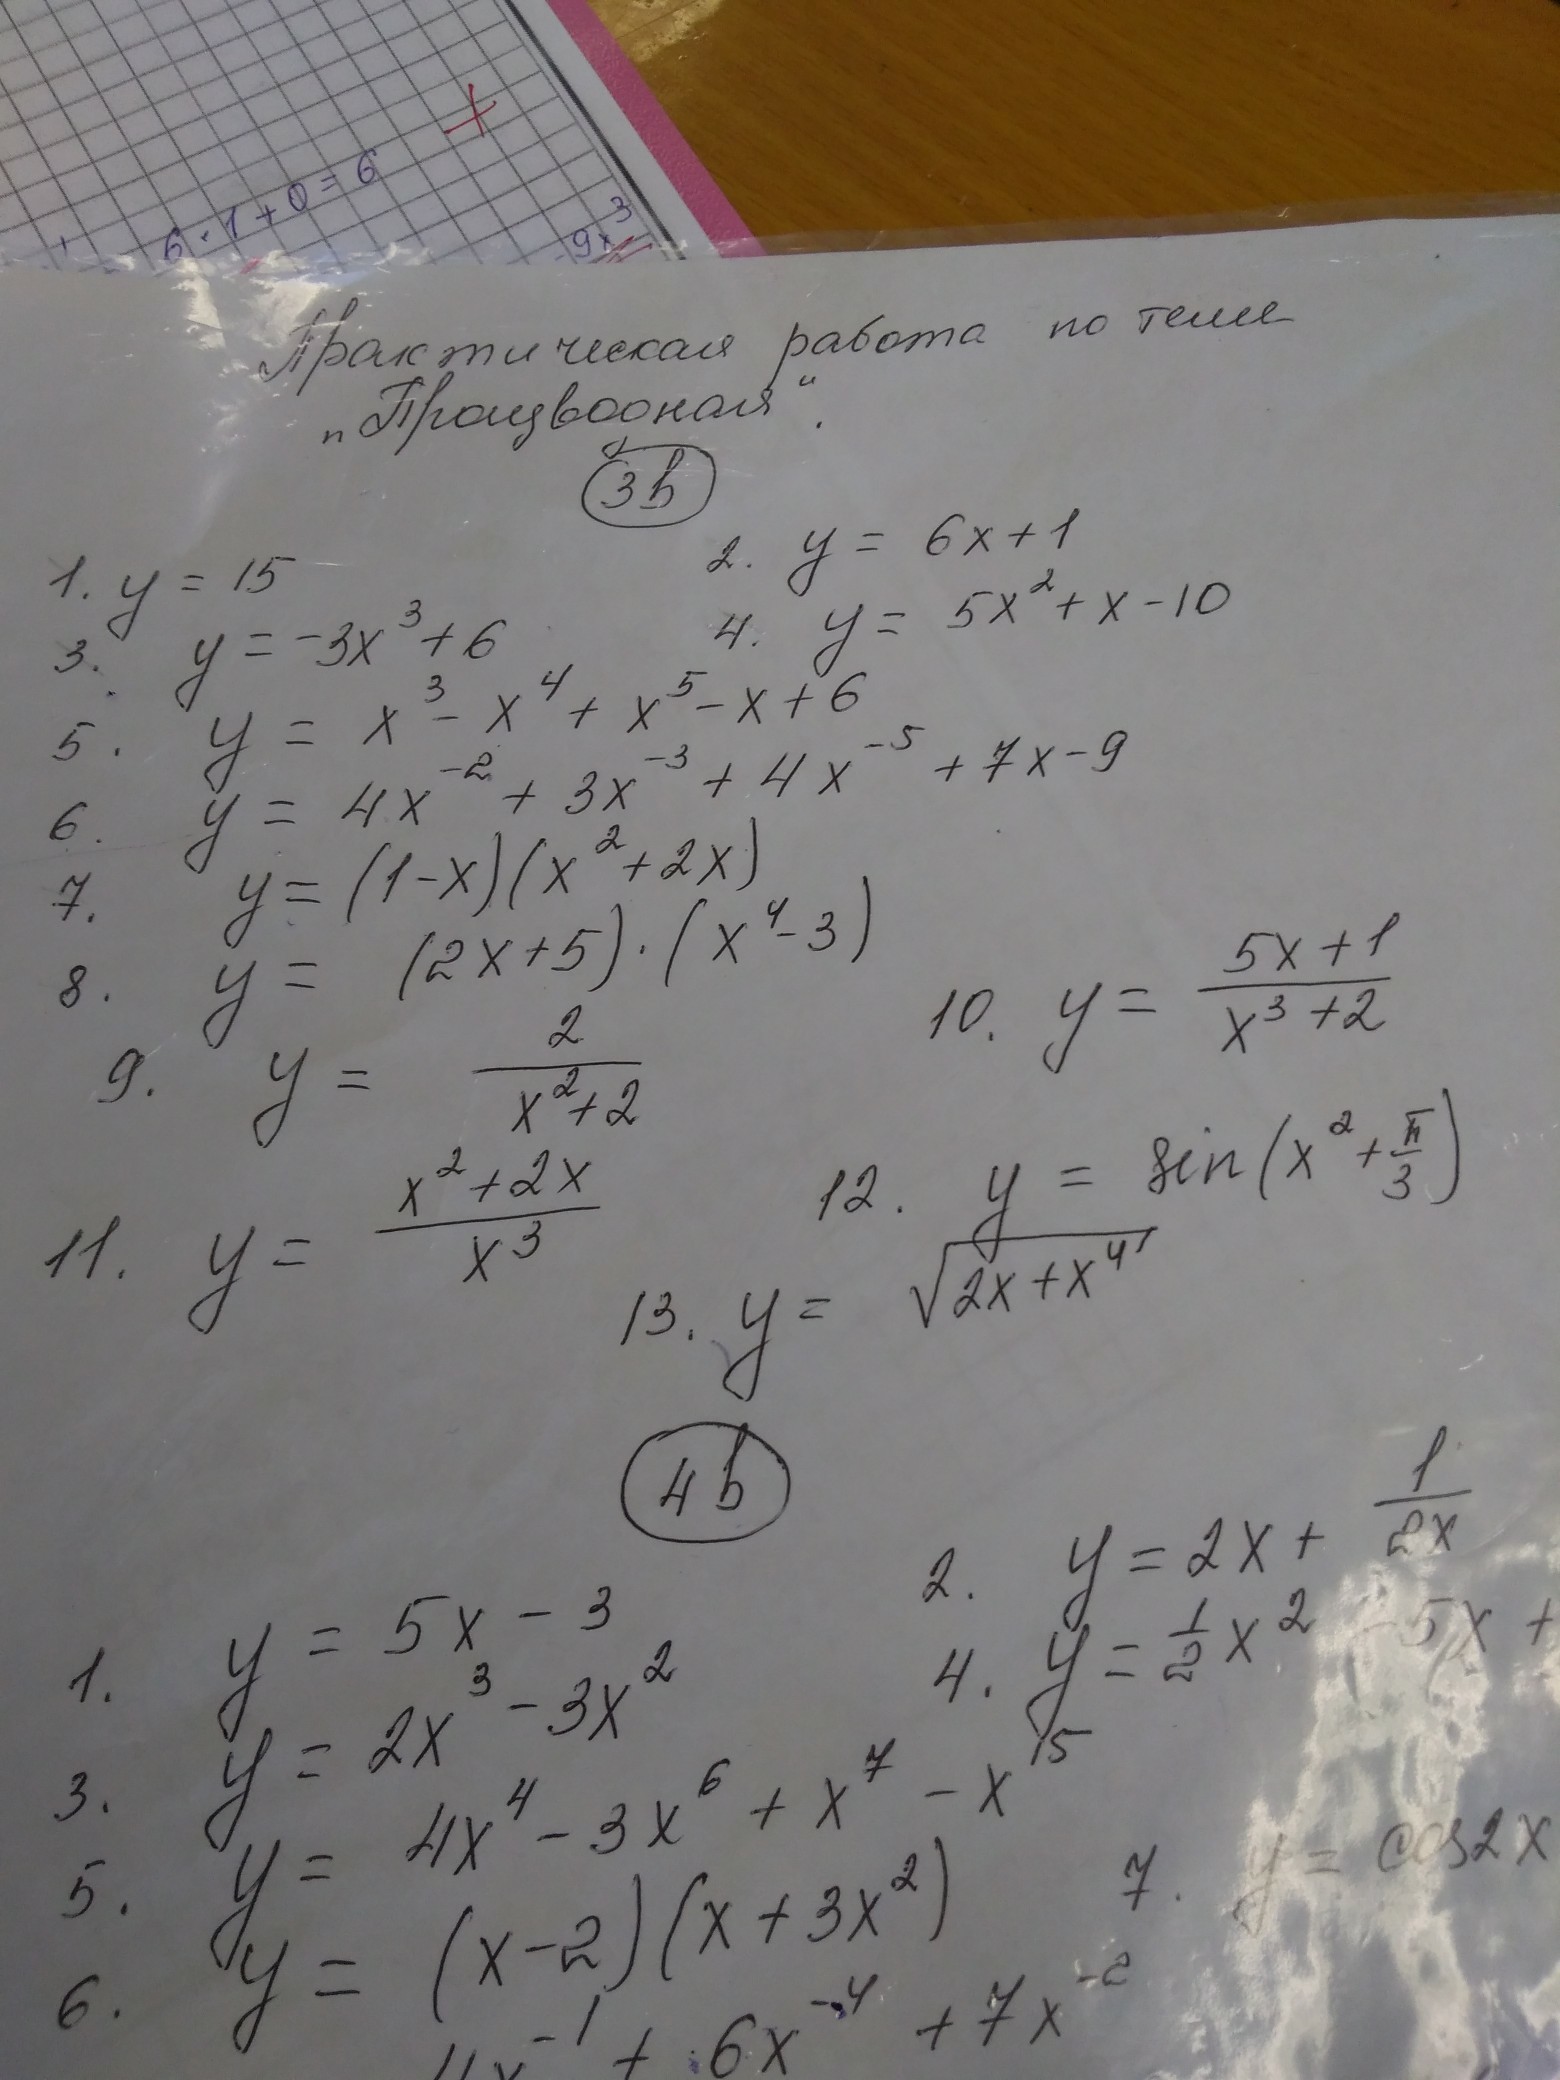 6·1+0=6
9x³
Практическая работа по теме
„Производная“.
3в
1. y = 15
2. y = 6x+1
3. y = -3x³+6
4. y = 5x²+x-10
5. y = x³ - x⁴ + x⁵ - x + 6
6. y = 4x⁻² + 3x⁻³ + 4x⁻⁵ + 7x - 9
7. y = (1-x)(x²+2x)
8. y = (2x+5)·(x⁴-3)
9. y = 2/(x²+2)
10. y = (5x+1)/(x³+2)
11. y = (x²+2x)/x³
12. y = sin(x²+π/3)
13. y = √(2x+x⁴)
4в
1. y = 5x - 3
2. y = 2x + 1/(2x)
3. y = 2x³ - 3x²
4. y = ½x² - 5x +
5. y = 4x⁴ - 3x⁶ + x⁷ - x¹⁵
6. y = (x-2)(x+3x²)
7. y = cos2x
4x⁻¹ + 6x⁻⁴ + 7x⁻²